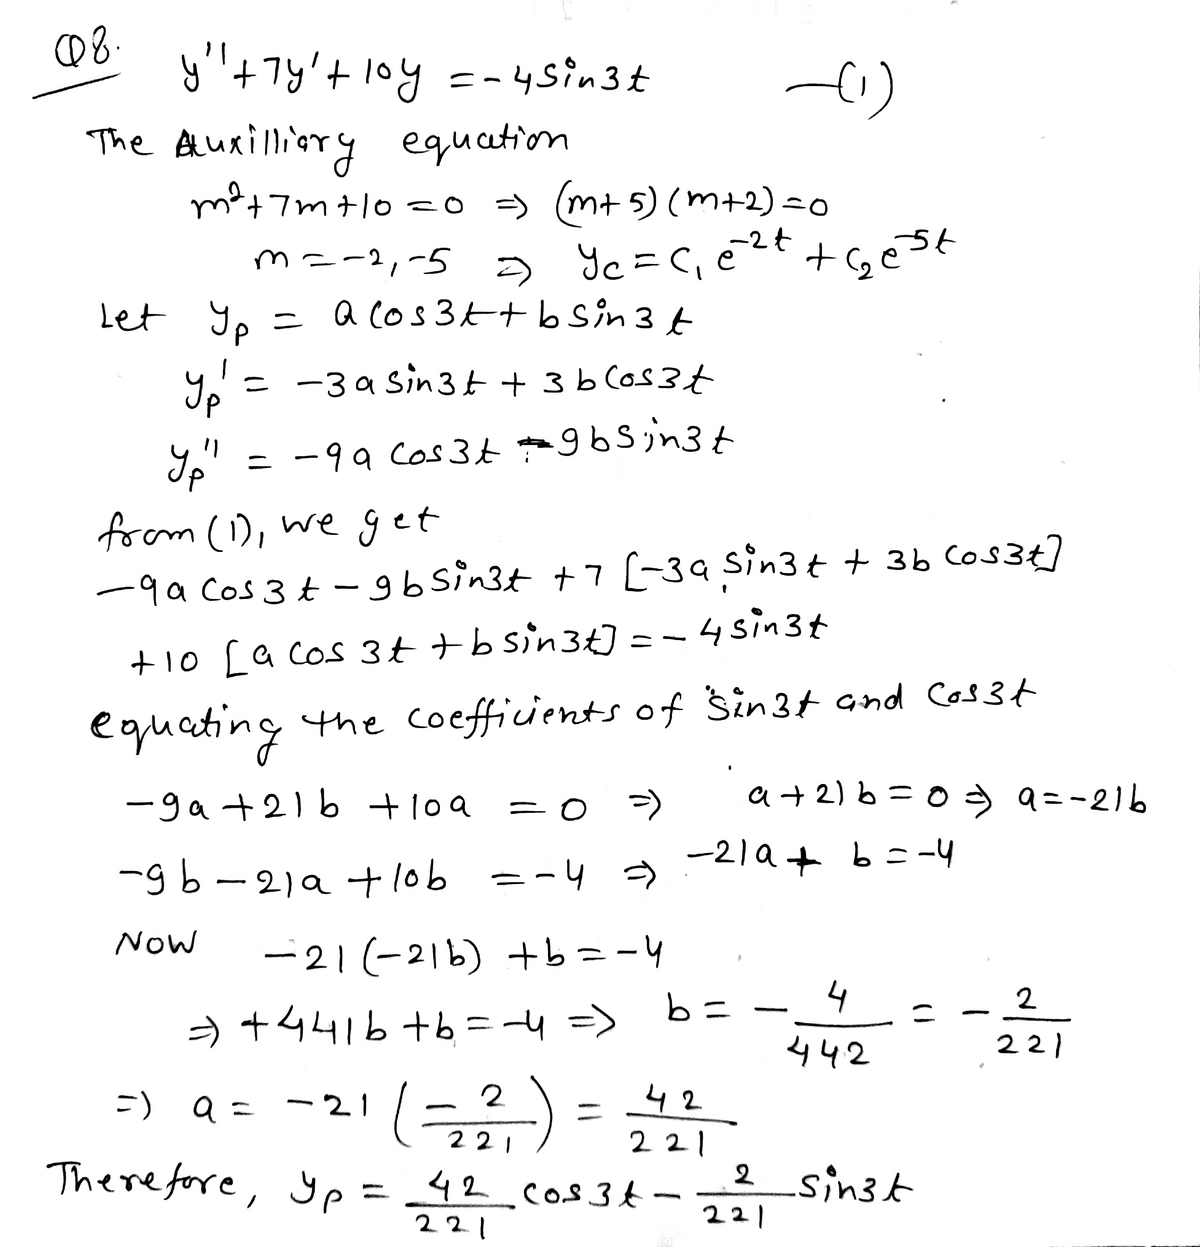 Q8. y'' + 7y' + 10y = -4 sin3t —(1)
The Auxilliary equation
m² + 7m + 10 = 0 ⇒ (m+5)(m+2) = 0
m = -2, -5 ⇒ y_c = c₁ e^{-2t} + c₂ e^{-5t}
Let y_p = a cos3t + b sin3t
y_p' = -3a sin3t + 3b cos3t
y_p'' = -9a cos3t - 9b sin3t
from (1), we get
-9a cos3t - 9b sin3t + 7 [-3a sin3t + 3b cos3t]
+10 [a cos 3t + b sin3t] = -4 sin3t
equating the coefficients of sin3t and cos3t
-9a + 21b + 10a = 0 ⇒ a + 21b = 0 ⇒ a = -21b
-9b - 21a + 10b = -4 ⇒ -21a + b = -4
Now -21(-21b) + b = -4
⇒ +441b + b = -4 ⇒ b = -4/442 = -2/221
⇒ a = -21 (-2/221) = 42/221
Therefore, y_p = 42/221 cos3t - 2/221 sin3t